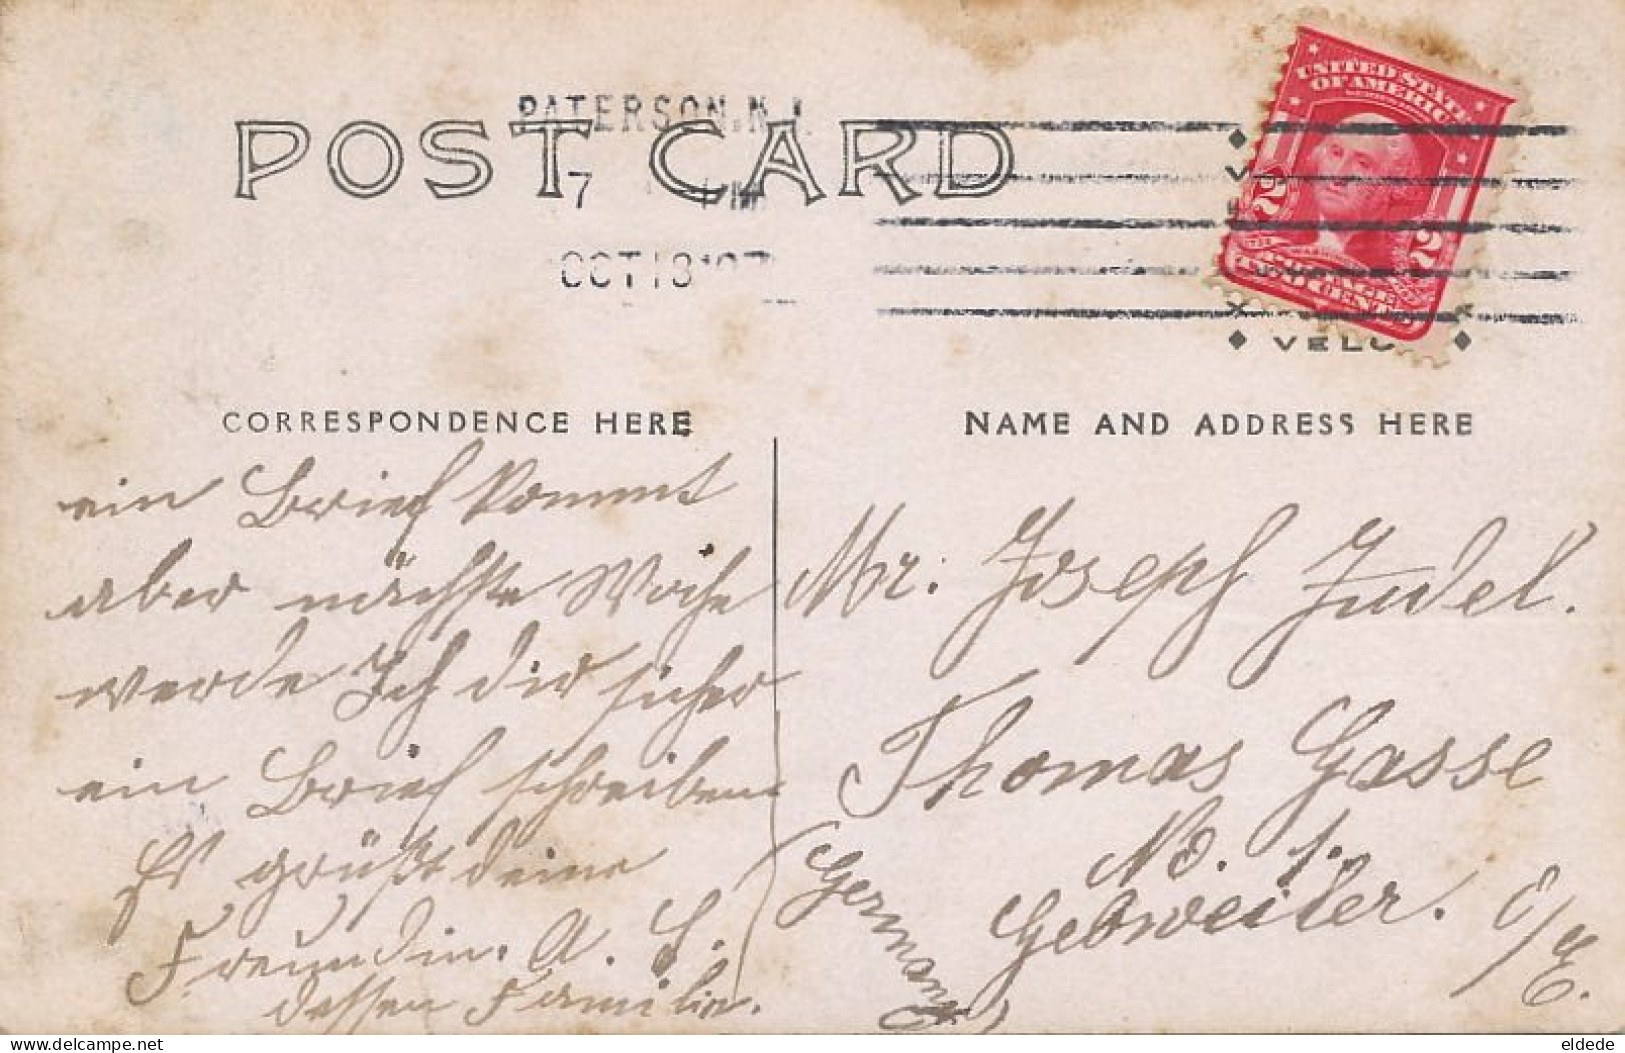 PATERSON, N.J.
POST CARD
7
OCT 13 '07
UNITED STATES
OF AMERICA
2 2
POSTAGE
TWO CENTS
VELO
CORRESPONDENCE HERE
NAME AND ADDRESS HERE
ein Brief kommt
aber nächste Woche
werde Ich dir sicher
ein Brief schreiben
Es grüßt deine
Freundin. A. S.
dessen Familie.
Mr. Joseph Judel.
Thomas Gasse
No. 1.
Gebweiler. i/E.
(Germany)
eldede